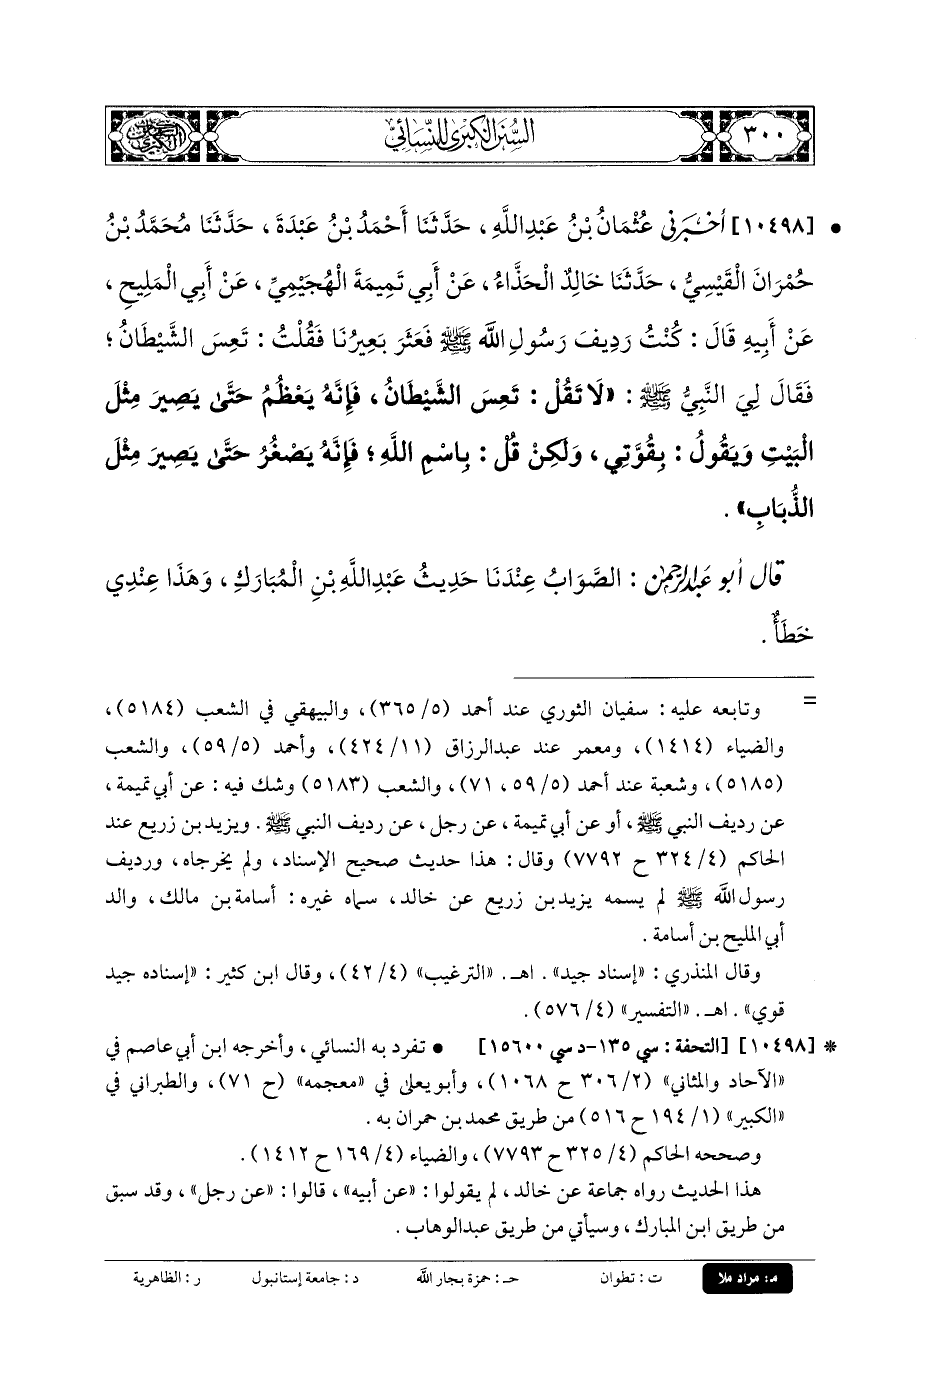 السنن الكبرى للنسائي
٣٠٠
• [١٠٤٩٨] أَخْبَرَنِي عُثْمَانُ بْنُ عَبْدِاللَّهِ، حَدَّثَنَا أَحْمَدُ بْنُ عَبْدَةَ، حَدَّثَنَا مُحَمَّدُ بْنُ
حُمْرَانَ الْقَيْسِيُّ، حَدَّثَنَا خَالِدٌ الْحَذَّاءُ، عَنْ أَبِي تَمِيمَةَ الْهُجَيْمِيِّ، عَنْ أَبِي الْمَلِيحِ،
عَنْ أَبِيهِ قَالَ: كُنْتُ رَدِيفَ رَسُولِ اللَّهِ ﷺ فَعَثَرَ بَعِيرُنَا فَقُلْتُ: تَعِسَ الشَّيْطَانُ؛
فَقَالَ لِيَ النَّبِيُّ ﷺ: «لَا تَقُلْ: تَعِسَ الشَّيْطَانُ، فَإِنَّهُ يَعْظُمُ حَتَّى يَصِيرَ مِثْلَ
الْبَيْتِ وَيَقُولُ: بِقُوَّتِي، وَلَكِنْ قُلْ: بِاسْمِ اللَّهِ؛ فَإِنَّهُ يَصْغُرُ حَتَّى يَصِيرَ مِثْلَ
الذُّبَابِ».
قَالَ أَبُو عَبْدِ الرَّحْمَنِ: الصَّوَابُ عِنْدَنَا حَدِيثُ عَبْدِاللَّهِ بْنِ الْمُبَارَكِ، وَهَذَا عِنْدِي
خَطَأٌ.
= وتابعه عليه: سفيان الثوري عند أحمد (٥/ ٣٦٥)، والبيهقي في الشعب (٥١٨٤)،
والضياء (١٤١٤)، ومعمر عند عبدالرزاق (١١/ ٤٢٤)، وأحمد (٥/ ٥٩)، والشعب
(٥١٨٥)، وشعبة عند أحمد (٥/ ٥٩، ٧١)، والشعب (٥١٨٣) وشك فيه: عن أبي تميمة،
عن رديف النبي ﷺ، أو عن أبي تميمة، عن رجل، عن رديف النبي ﷺ. ويزيد بن زريع عند
الحاكم (٤/ ٣٢٤ ح ٧٧٩٢) وقال: هذا حديث صحيح الإسناد، ولم يخرجاه، ورديف
رسول الله ﷺ لم يسمه يزيد بن زريع عن خالد، سماه غيره: أسامة بن مالك، والد
أبي المليح بن أسامة.
وقال المنذري: «إسناد جيد». اهـ. «الترغيب» (٤/ ٤٢)، وقال ابن كثير: «إسناده جيد
قوي». اهـ. «التفسير» (٤/ ٥٧٦).
* [١٠٤٩٨] [التحفة: سي ١٣٥-د سي ١٥٦٠٠] • تفرد به النسائي، وأخرجه ابن أبي عاصم في
«الآحاد والمثاني» (٢/ ٣٠٦ ح ١٠٦٨)، وأبو يعلى في «معجمه» (ح ٧١)، والطبراني في
«الكبير» (١/ ١٩٤ ح ٥١٦) من طريق محمد بن حمران به.
وصححه الحاكم (٤/ ٣٢٥ ح ٧٧٩٣)، والضياء (٤/ ١٦٩ ح ١٤١٢).
هذا الحديث رواه جماعة عن خالد، لم يقولوا: «عن أبيه»، قالوا: «عن رجل»، وقد سبق
من طريق ابن المبارك، وسيأتي من طريق عبدالوهاب.
م: مراد ملا ت: تطوان حـ: حمزة بجار الله د: جامعة إستانبول ر: الظاهرية